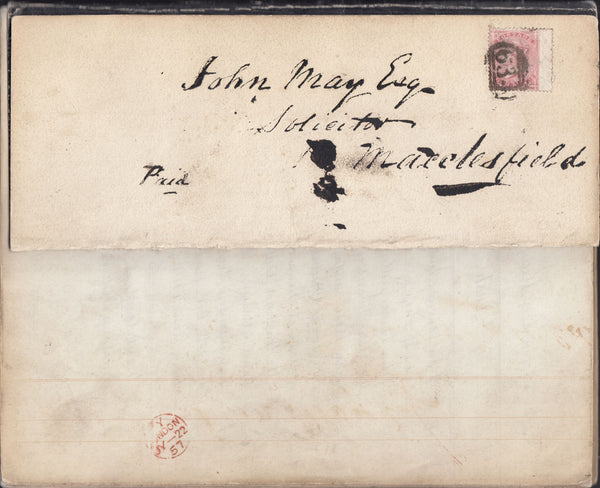 John May Esq
Solicitor
Macclesfield
Paid
63
Y
LONDON
JY-22
57